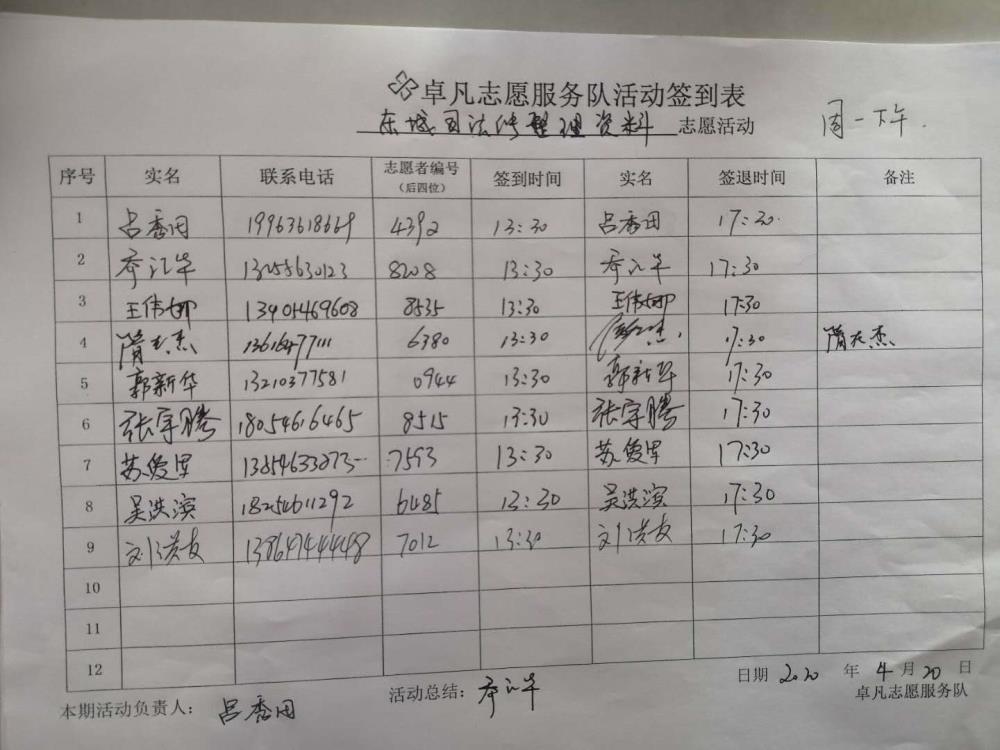 卓凡志愿服务队活动签到表
东城司法所整理资料 志愿活动 周一下午.
序号 实名 联系电话 志愿者编号（后四位） 签到时间 实名 签退时间 备注
1 吕秀田 19963618669 4392 13:30 吕秀田 17:30
2 乔江华 13255630123 8208 13:30 乔江华 17:30
3 王伟娜 13401469608 8535 13:30 王伟娜 17:30
4 隋志杰 13616477111 6380 13:30 17:30 隋志杰
5 郭新华 13210377581 0944 13:30 郭新华 17:30
6 张宇腾 18054616465 8515 13:30 张宇腾 17:30
7 苏爱军 13854633873 7593 13:30 苏爱军 17:30
8 吴洪滨 18254611292 6485 13:30 吴洪滨 17:30
9 刘洪友 7012 13:30 刘洪友 17:30
10
11
12
日期 2020 年 4 月 20 日
本期活动负责人： 吕秀田 活动总结： 乔江华 卓凡志愿服务队